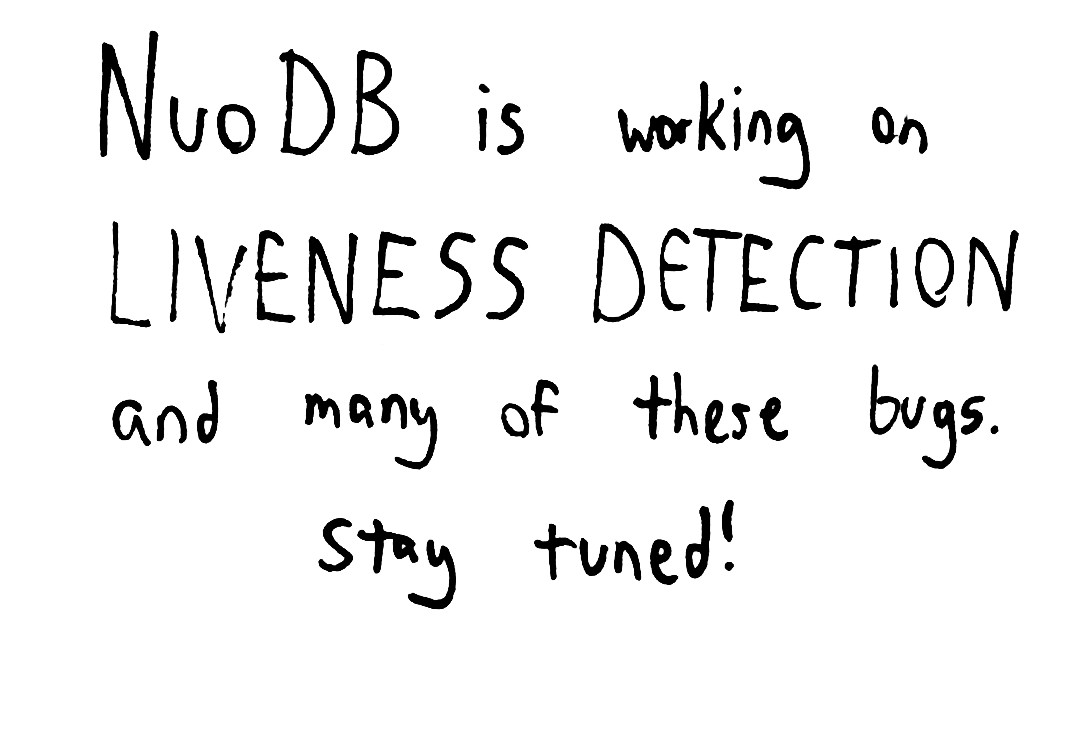 NuoDB is working on
LIVENESS DETECTION
and many of these bugs.
Stay tuned!